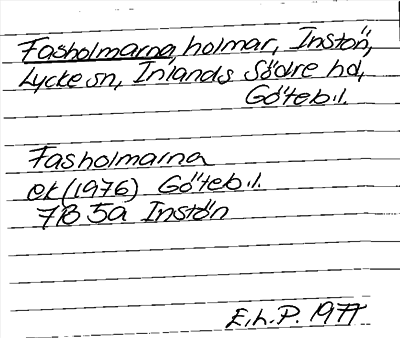 Fasholmarna, holmar, Instön,
Lycke sn, Inlands Södre hd,
Göteb.l.
Fasholmarna
ek (1976) Göteb.l.
7B 5a Instön
E.h.P. 1977